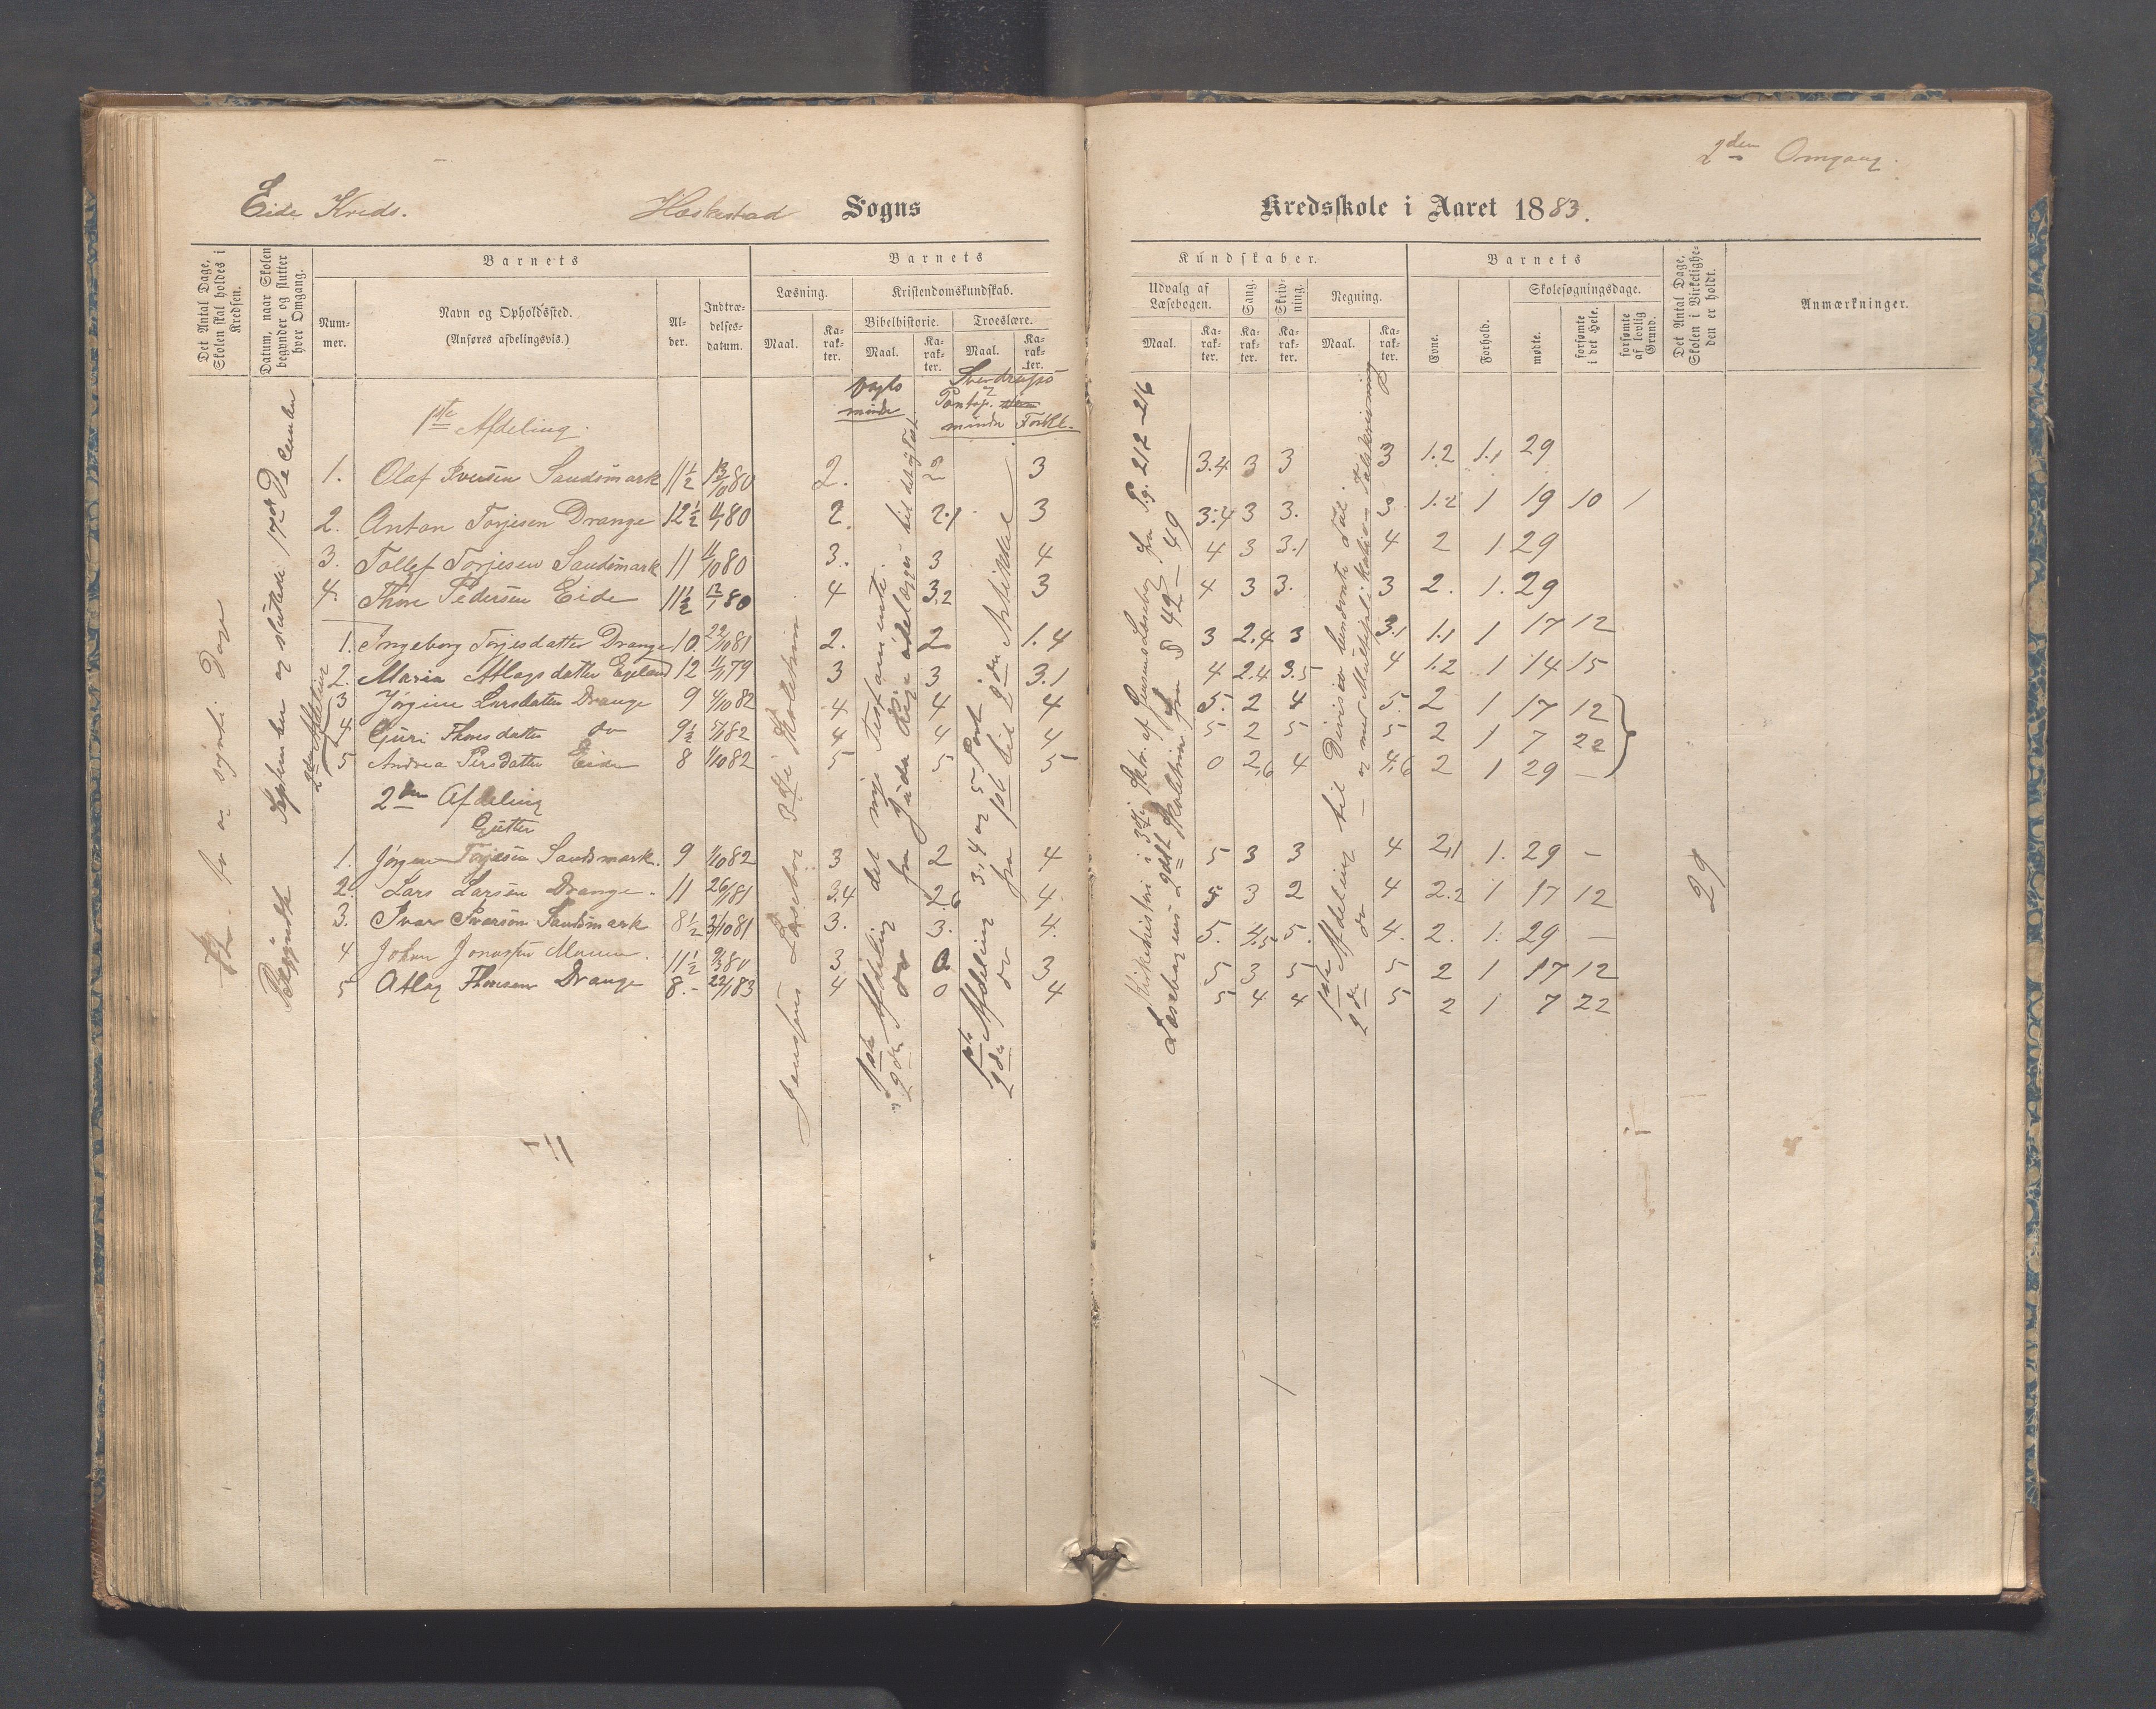 2den Omgang.
Eide Kreds. Heskestad Sogns
Kredsskole i Aaret 1883.
Det Antal Dage, Skolen skal holdes i Kredsen.
Datum, naar Skolen begynder og slutter hver Omgang.
Barnets
Nummer.
Navn og Opholdssted.
(Anføres afdelingsvis.)
Alder.
Indtrædelsesdatum.
Barnets
Læsning.
Maal.
Karakter.
Kristendomskundskab.
Bibelhistorie.
Maal.
Karakter.
Troeslære.
Maal.
Karakter.
Kundskaber.
Udvalg af Læsebogen.
Maal.
Karakter.
Sang.
Karakter.
Skrivning.
Karakter.
Regning.
Maal.
Karakter.
Barnets
Evne.
Forhold.
Skolesøgningsdage.
mødte.
forsømte i det Hele.
forsømte af lovlig Grund.
Det Antal Dage, Skolen i Virkeligheden er holdt.
Anmærkninger.
Vogts mindre
Sverdrups
mindre Forkl.
1ste Afdeling.
1. Olaf Iversen Sandsmark 11½ 13/10 80 2. 2 3 3.4 3 3 3 1.2 1.1 29
2. Anton Torjesen Drange 12½ 4/1 80 2. 2.1 3 3.4 3 3. 3. 1.2 1 19 10 1
3. Tollef Torjesen Sandsmark 11 11/10 80 3. 3 4 4 3 3.1 4 2 1. 29
4. Thore Pedersen Eide 11½ 12/1 80 4 3.2 3 4 3 3. 3 2. 1. 29
1. Ingeborg Torjesdatter Drange 10 22/10 81 2. 2 1.4 3 2.4 3 3.1 1.1 1 17 12
2. Maria Atlagsdatter Egeland 12 11/11 79 3 3 3.1 4 2.4 3.5 4 1.2 1 14 15
3 Jørgine Larsdatter Drange 9 4/10 82 4 4 4 5. 2 4 5. 2 1 17 12
4 Guri Thoresdatter do 9½ 5/1 82 4 4 4 5 2 5 5 2 1 7 22
5 Andrea Persdatter Eide 8 1/10 82 5 5 5 0 2.6 4 4.6 2 1 29 —
2den Afdeling
Gutter
1. Jørgen Torjesen Sandsmark. 9 1/10 82 3 2 4 5 3 3 4 2.1 1. 29 —
2. Lars Larsen Drange. 11 26/1 81 3.4 2.6 4. 5 3 2 4 2.2 1 17 12
3. Ivar Iversen Sandsmark 8½ 3/10 81 3. 3. 4. 5. 4.5 5. 4. 2. 1. 29 —
4 Johan Jonassen 11½ 9/3 80 3 0 3 5 3 5 5 2 1 17 12
5 Atlag Thoresen Drange 8. 22/1 83 4 0 4 5 4 4 5 2 1 7 22
Begyndte September og sluttede 17de December
Jensens Læsebog 3die Skoletrin
1ste Afdeling det nye Testamente.
2den do fra Juda Rige ødelægges til det
1ste Afdeling 3, 4 og 5 Part.
2den do fra 1st til 2den Artikkel
Kirkehistorie i 3die Skr. af Jensens Læsebog fra Pg. 212–216
Læsebogens 2det Skoletrin fra S 42–49
1ste Afdeling til Division
2den do
29